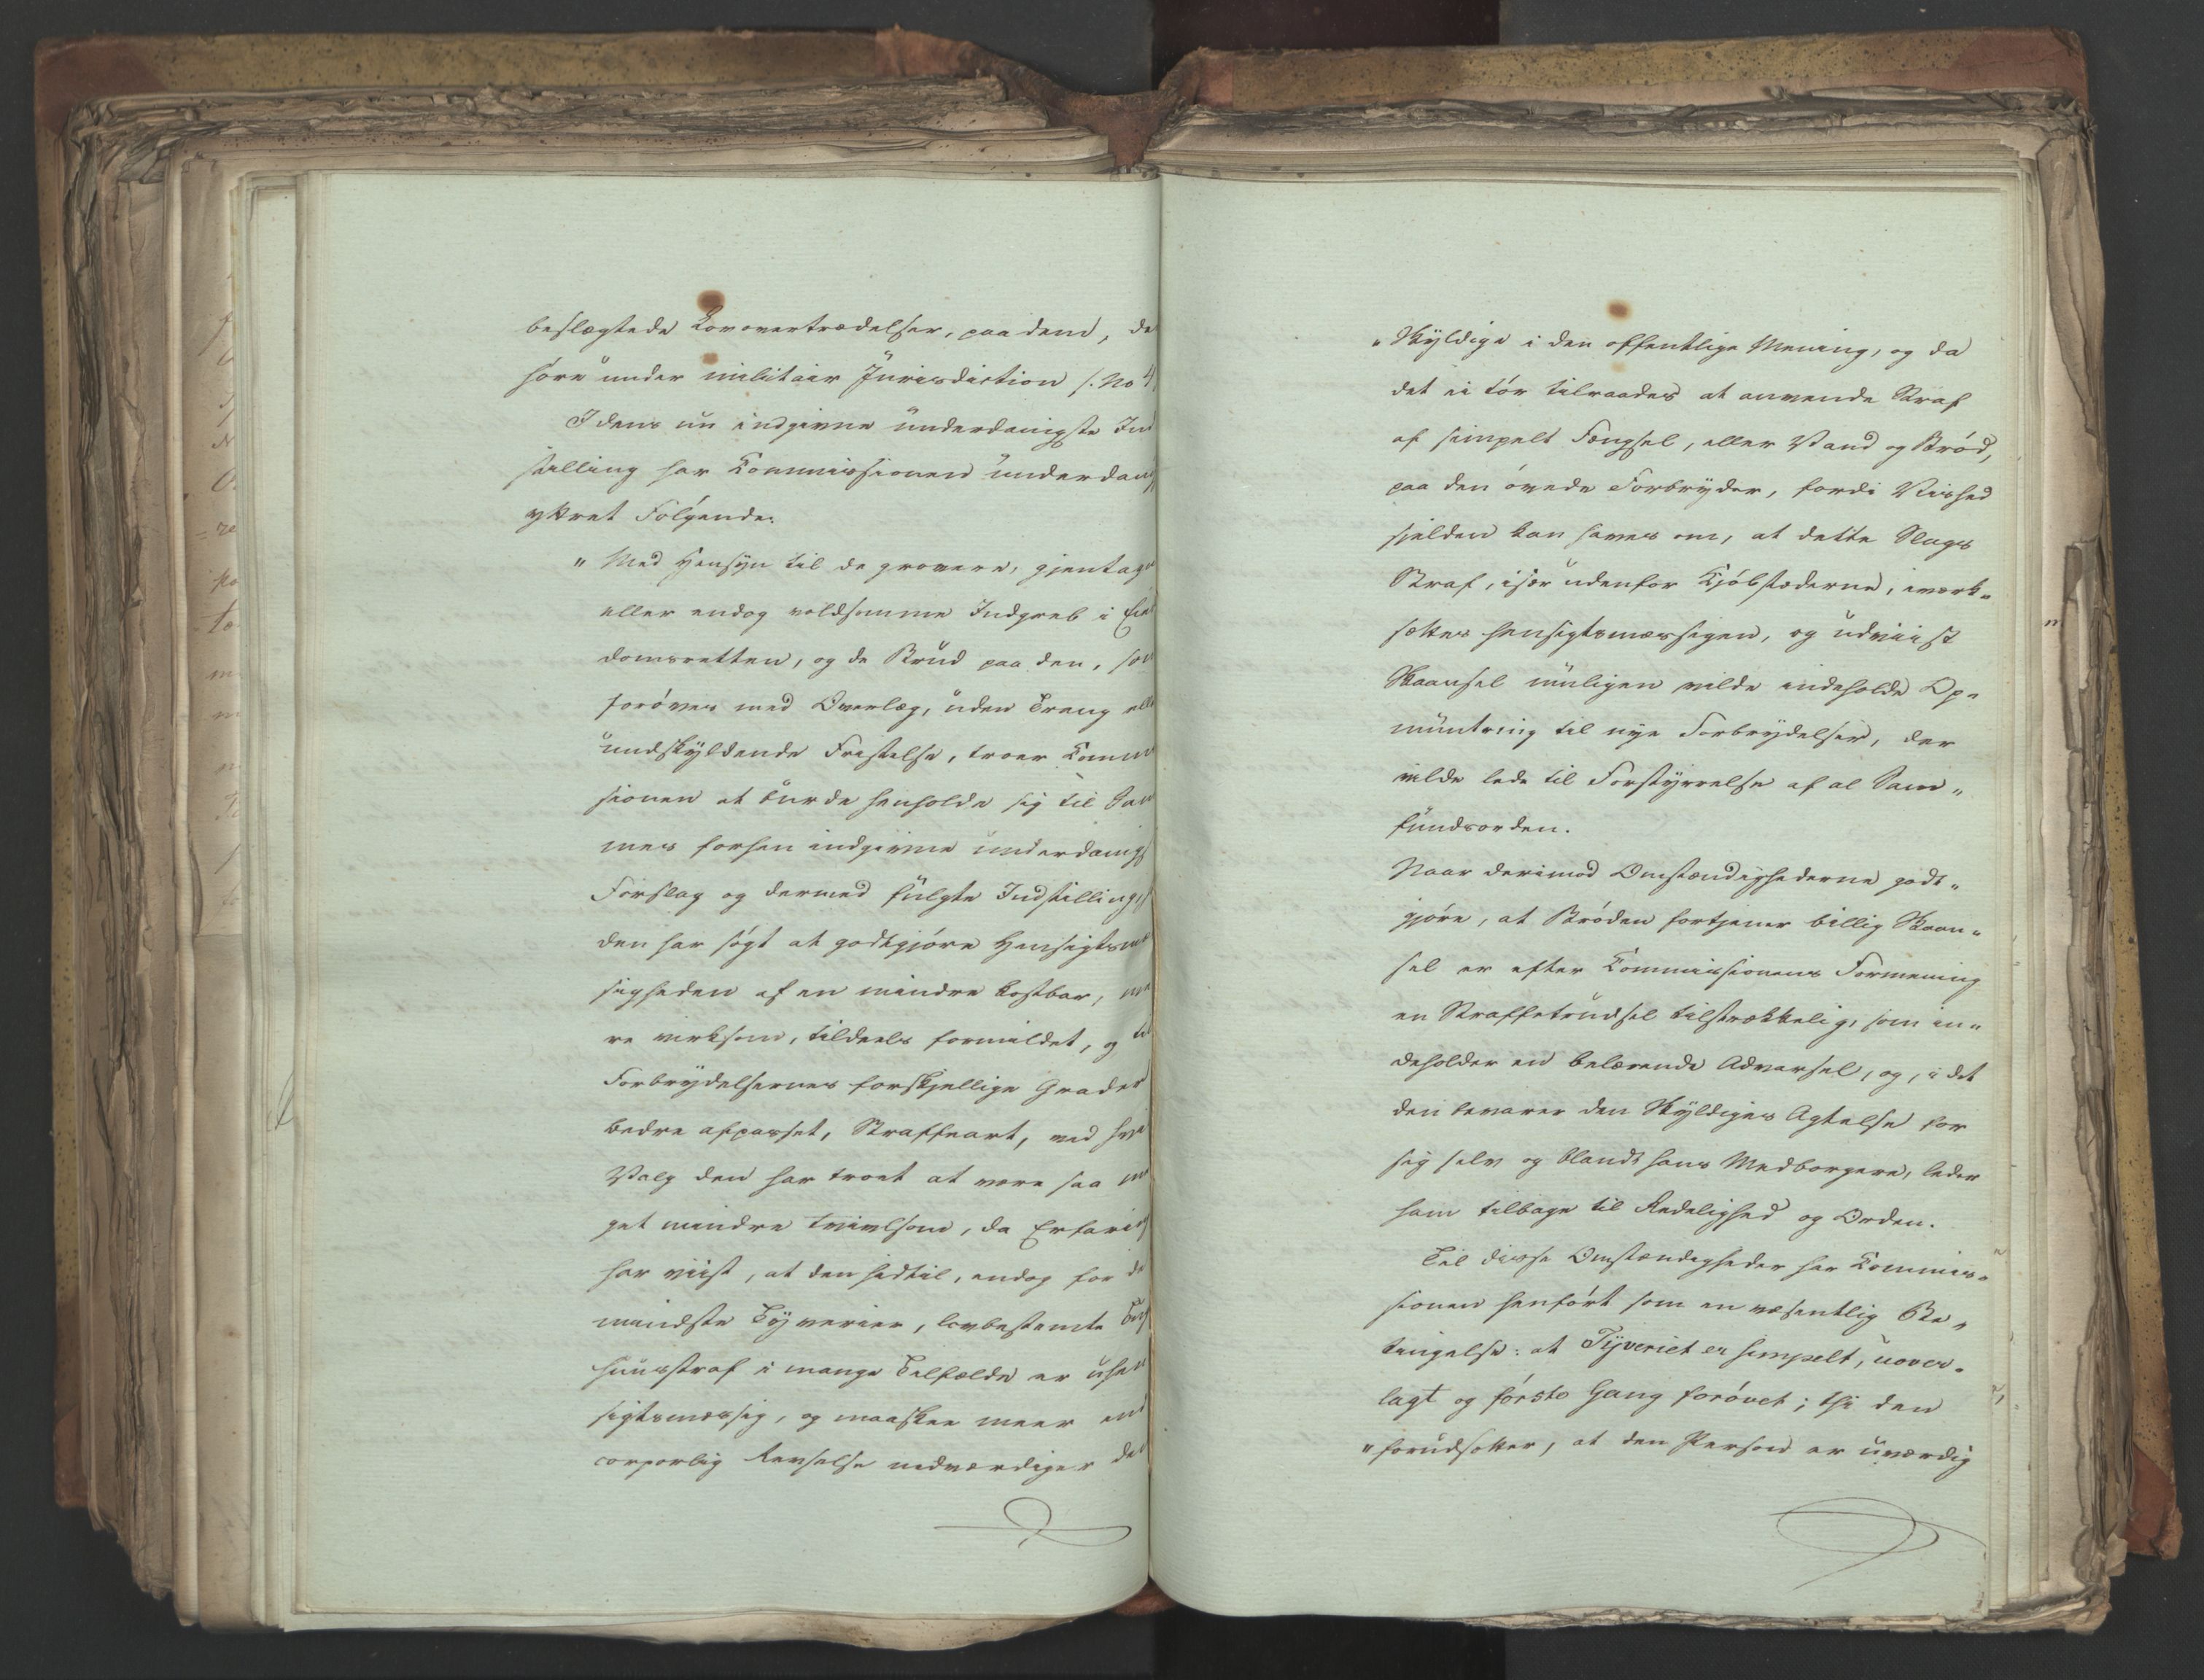 beslægtede Lovovertrædelser, paa dem, de
høre under militair Jurisdiction /: No 4,
I dens nu indgivne underdanigste Ind
stilling har Commissionen underdanigst
yttret Følgende:
" Med Hensyn til de grovere, gjentagne
eller endog voldsomme Indgreb i Eien
domsretten, og de Brud paa den, som
forøves med Overlæg, uden Trang eller
undskyldende Fristelse, troer Commis
sionen at burde henholde sig til Sam
mes forhen indgivne underdanigst
Forslag og dermed fulgte Indstilling,
den har søgt at godtgjøre Hensigtsmæs
sigheden af en mindre kostbar, me
re virksom, tildeels formildet, og til
Forbrydelsernes forskjellige Grader
bedre afpasset, Straffeart, ved hvis
Valg den har troet at være saa me
get mindre tvivlsom, da Erfaring
har viist, at den hidtil, endog for de
mindste Tyverier, lovbestemte Tugt
huusstraf i mange Tilfælde er uhen
sigtsmæssig, og maaskee meer end
corporlig Revselse nedværdiger den
" Skyldige i den offentlige Mening, og da
det ei tør tilraades at anvende Straf
af simpelt Fængsel, eller Vand og Brød,
paa den øvede Forbryder, fordi Vished
sjelden kan haves om, at dette Slags
Straf, især udenfor Kjøbstæderne, iværk-
sættes hensigtsmæssigen, og udviist
Skaansel muligen vilde indeholde Op-
muntring til nye Forbrydelser, der
vilde lede til Forstyrrelse af al Sam-
fundsorden.
Naar derimod Omstændighederne godt-
gjøre, at Brøden fortjener billig Skaan-
sel er efter Commissionens Formening
en Straffetrudsel tilstrækkelig, som in-
deholder en belærende Advarsel, og, i det
den bevarer den Skyldiges Agtelse for
sig selv og blandt hans Medborgere, leder
ham tilbage til Redelighed og Orden.
Til disse Omstændigheder har Commis-
sionen henført som en væsentlig Be-
tingelse: at Tyveriet er simpelt, uover-
lagt og første Gang forøvet; thi den
" forudsætter, at den Person er uværdig